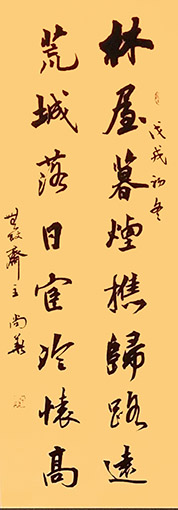 林屋暮煙樵歸路遠
戊戌初冬
荒城落日宦冷懷高
齋主尚